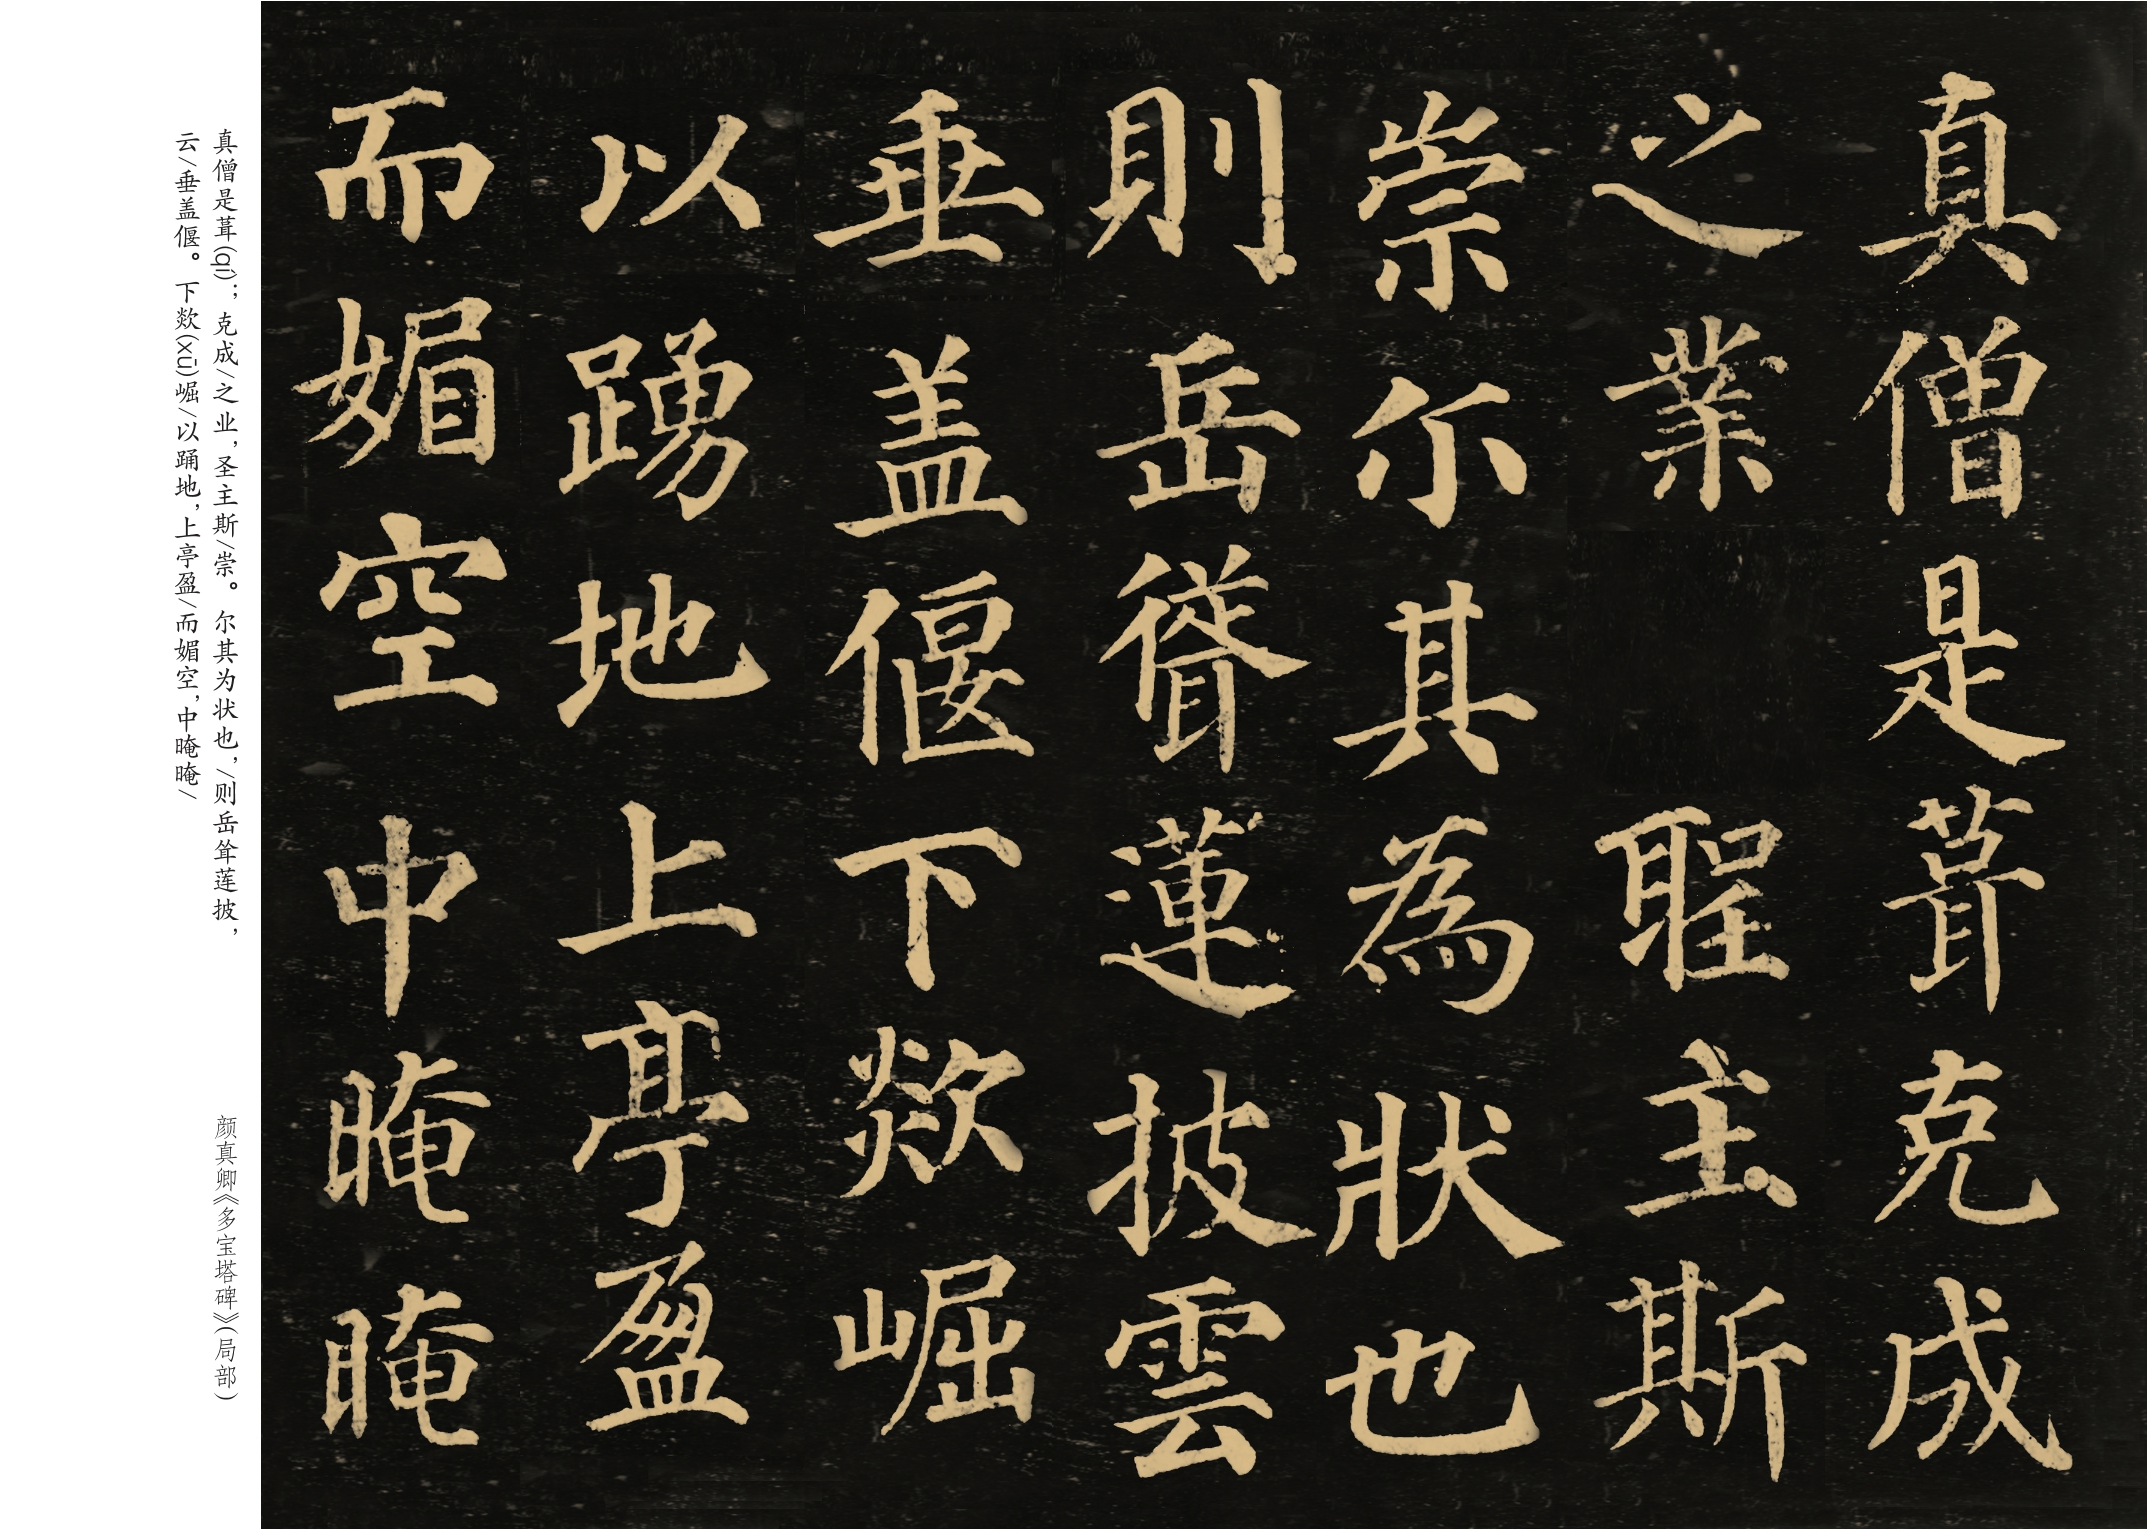 真僧是葺克成
之業 聖主斯
崇尓其為狀也
則岳聳蓮披雲
垂盖偃下欻崛
以踴地上亭盈
而媚空中晻晻
真僧是葺(qì)；克成/之业，圣主斯/崇。尔其为状也，/则岳耸莲披，
云/垂盖偃。下欻(xū)崛/以踊地，上亭盈/而媚空，中晻晻/
颜真卿《多宝塔碑》(局部)